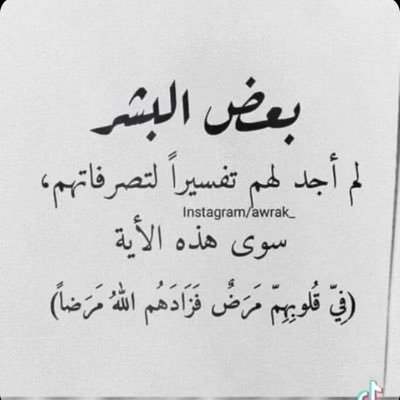 بعض البشر
لم أجد لهم تفسيراً لتصرفاتهم،
Instagram/awrak_
سوى هذه الأية
(فِيّ قُلوبِهِمّ مَرَضٌ فَزَادَهُم اللهُ مَرَضاً)